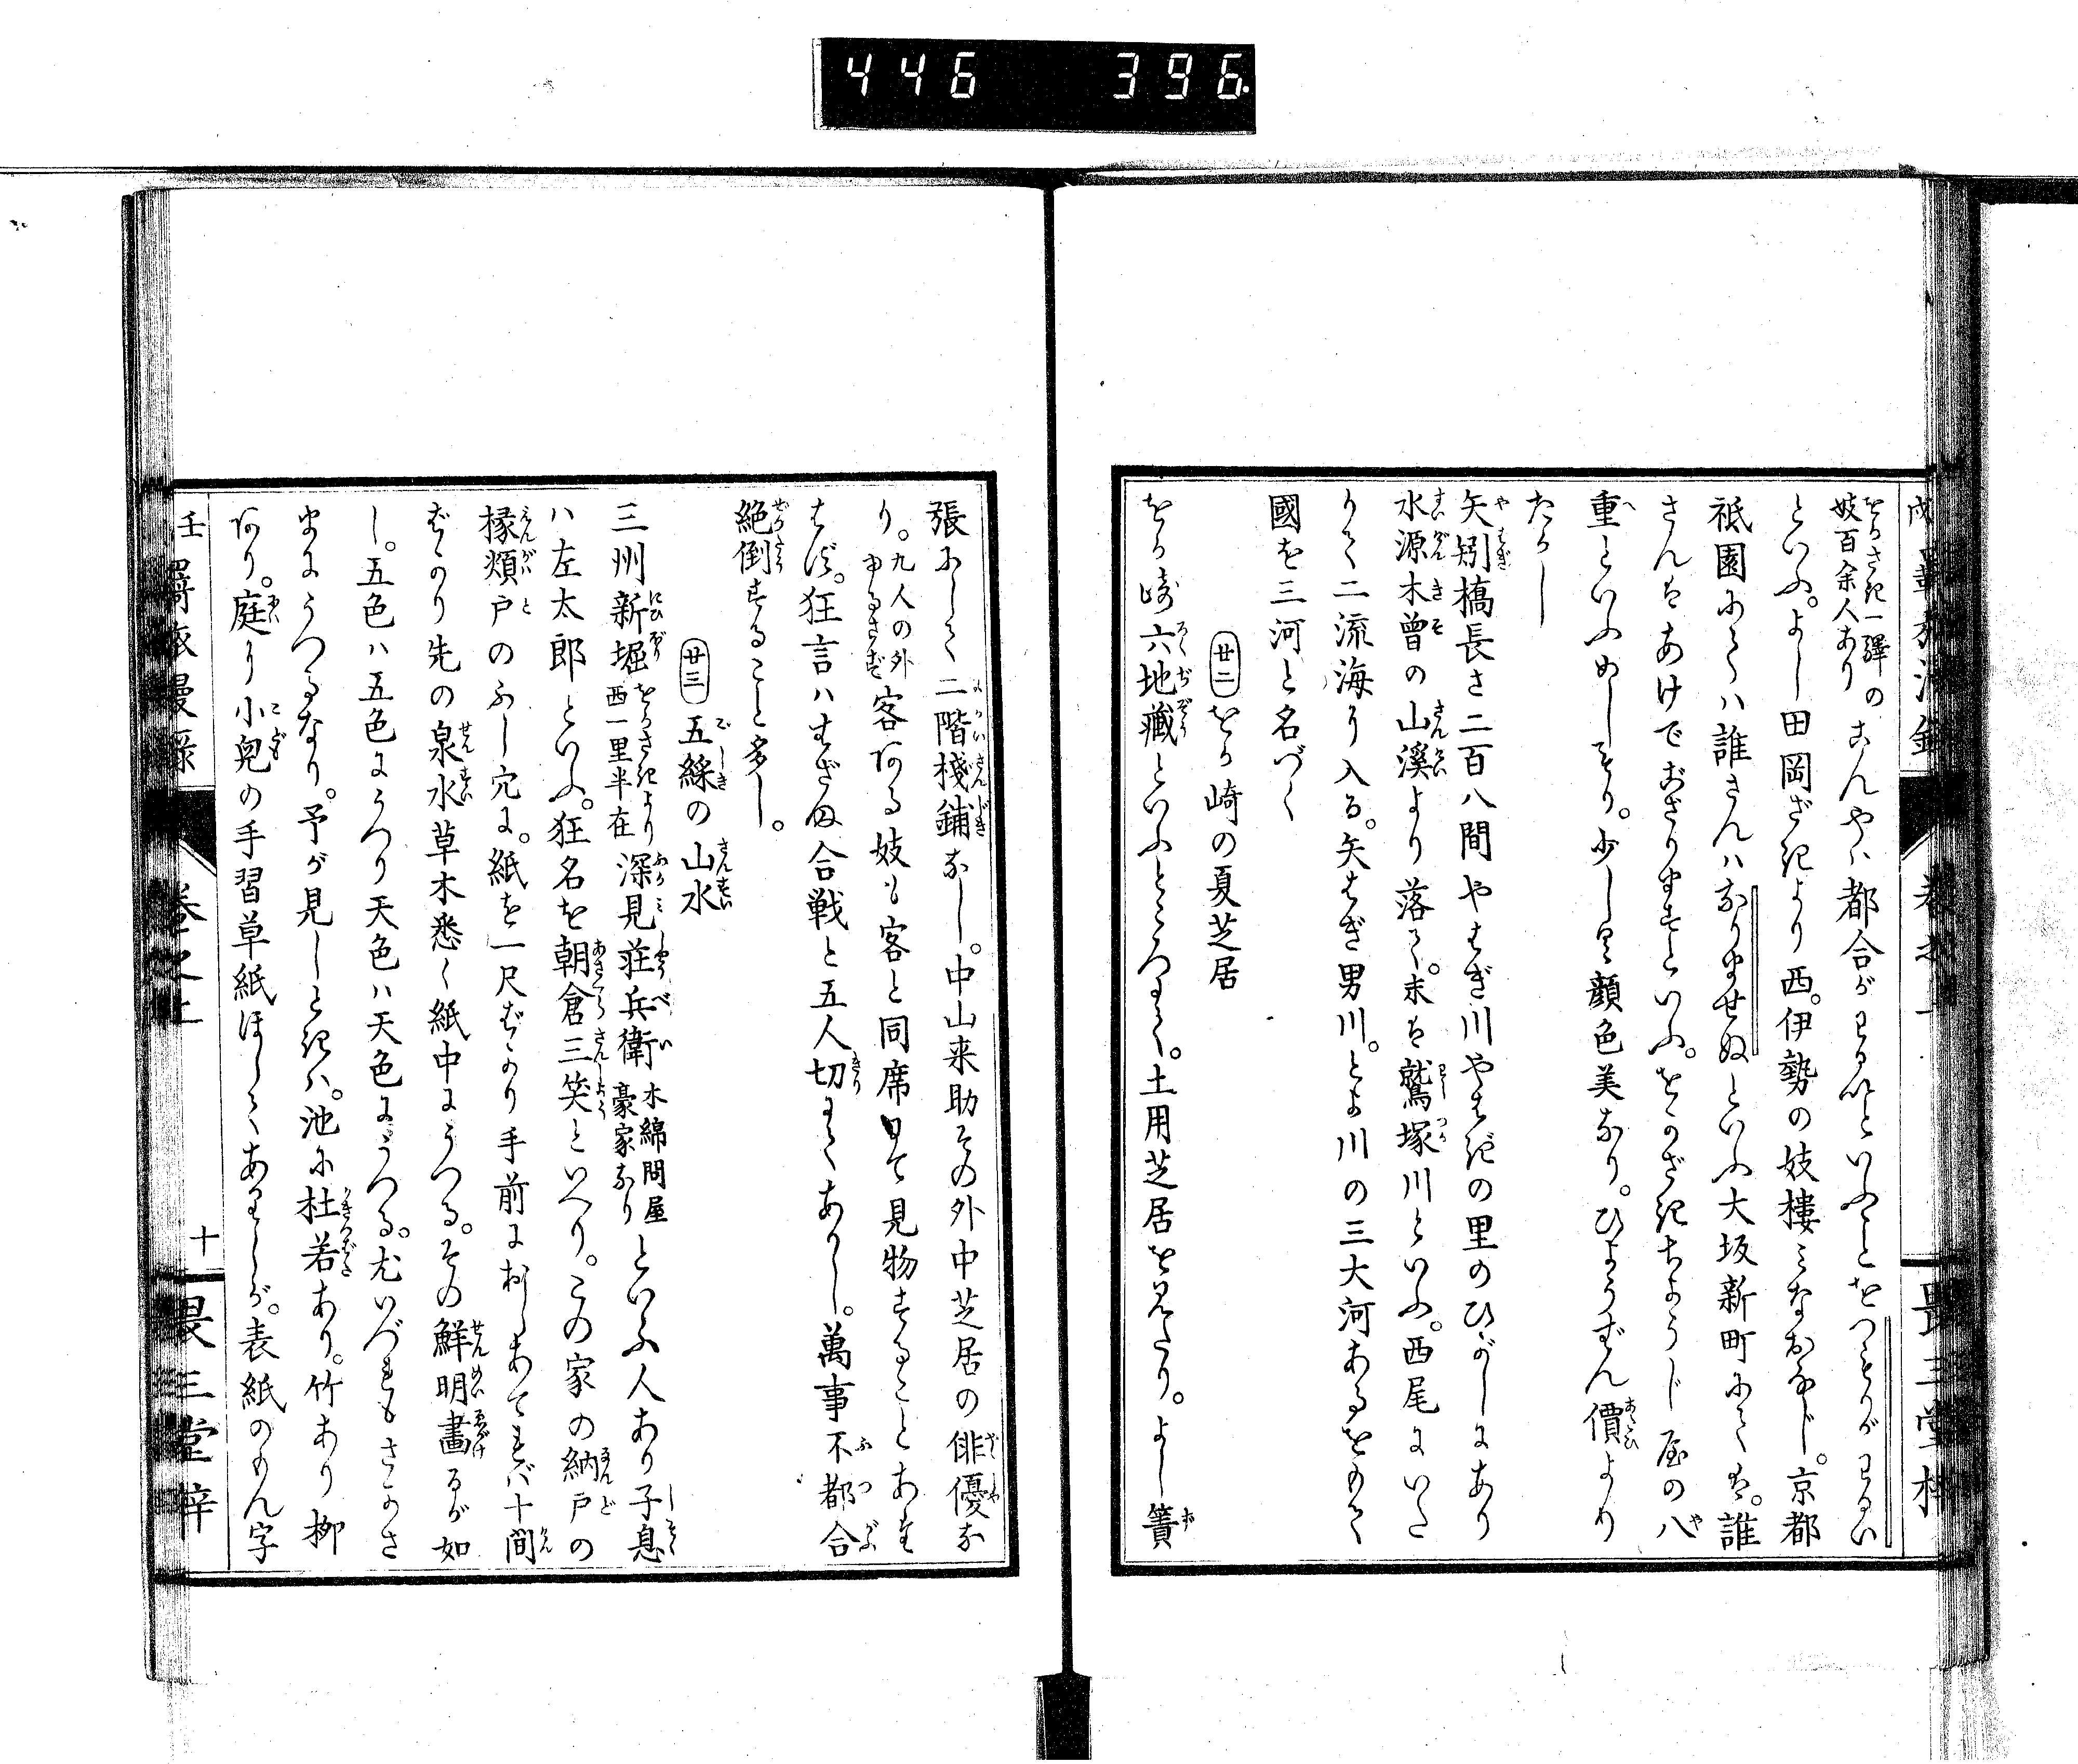 446 396
をかさき一驛の
妓百余人あり
あんやハ都合がわるいといふことをつもりがわるい
といふ。よし田岡ざきより西。伊勢の妓樓ミなおなじ。京都
祇園にてハ誰さんハなりませぬといふ大坂新町にてハ。誰
さんはあけでおざりますといふ。をかざきちようじ屋の八
重といふめしもり。少しく顔色美なり。ひようばん價より
たかし
矢矧橋長さ二百八間やはぎ川やはぎの里のひがしにあり
水源木曾の山溪より落て。末は鷲塚川といふ。西尾にいた
りて二流海に入る。矢はぎ男川。とよ川の三大河あるをもて
國を三河と名づく
廿二 をか崎の夏芝居
をか崎六地藏といふところにて。土用芝居を見たり。よし簀
張にして二階棧鋪なし。中山来助その外中芝居の俳優な
り。九人の外
ゆるさず
客ある妓も客と同席にて見物することあた
はず。狂言ハはざま合戦と五人切にてありし。萬事不都合
絶倒することが多し。
廿三 五綵の山水
三州新堀 をかさきより
西一里半在 深見荘兵衛 木綿問屋
豪家なり といふ人あり子息
ハ左太郎といふ。狂名を朝倉三笑といへり。この家の納戸の
椽頬戸のふし穴に。紙を一尺ばかり手前におしあてれバ十間
ばかり先の泉水草木悉く紙中にうつる。その鮮明畫るが如
し。五色ハ五色にうつり天色ハ天色にうつる。尤いづれもさかさ
まにうつるなり。予が見しときハ。池に杜若あり。竹あり柳
あり。庭に小兒の手習草紙ほしてありしが。表紙のもん字
壬 羇旅漫録 巻之上 十 畏三堂梓